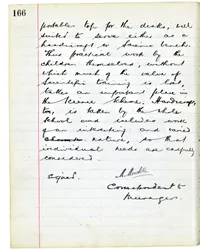 166
portable top for the desks, well
suited to serve either as a
handicraft or Science bench.
Thus practical work by the
children themselves, without
which much of the value of
Scientific training is lost,
takes an important place in
the Science Scheme. Handicraft,
too, is taken by the whole
School and includes work
of an interesting and varied
nature, so that
individual needs are carefully
considered.
Signed.
Correspondent &
Manager.